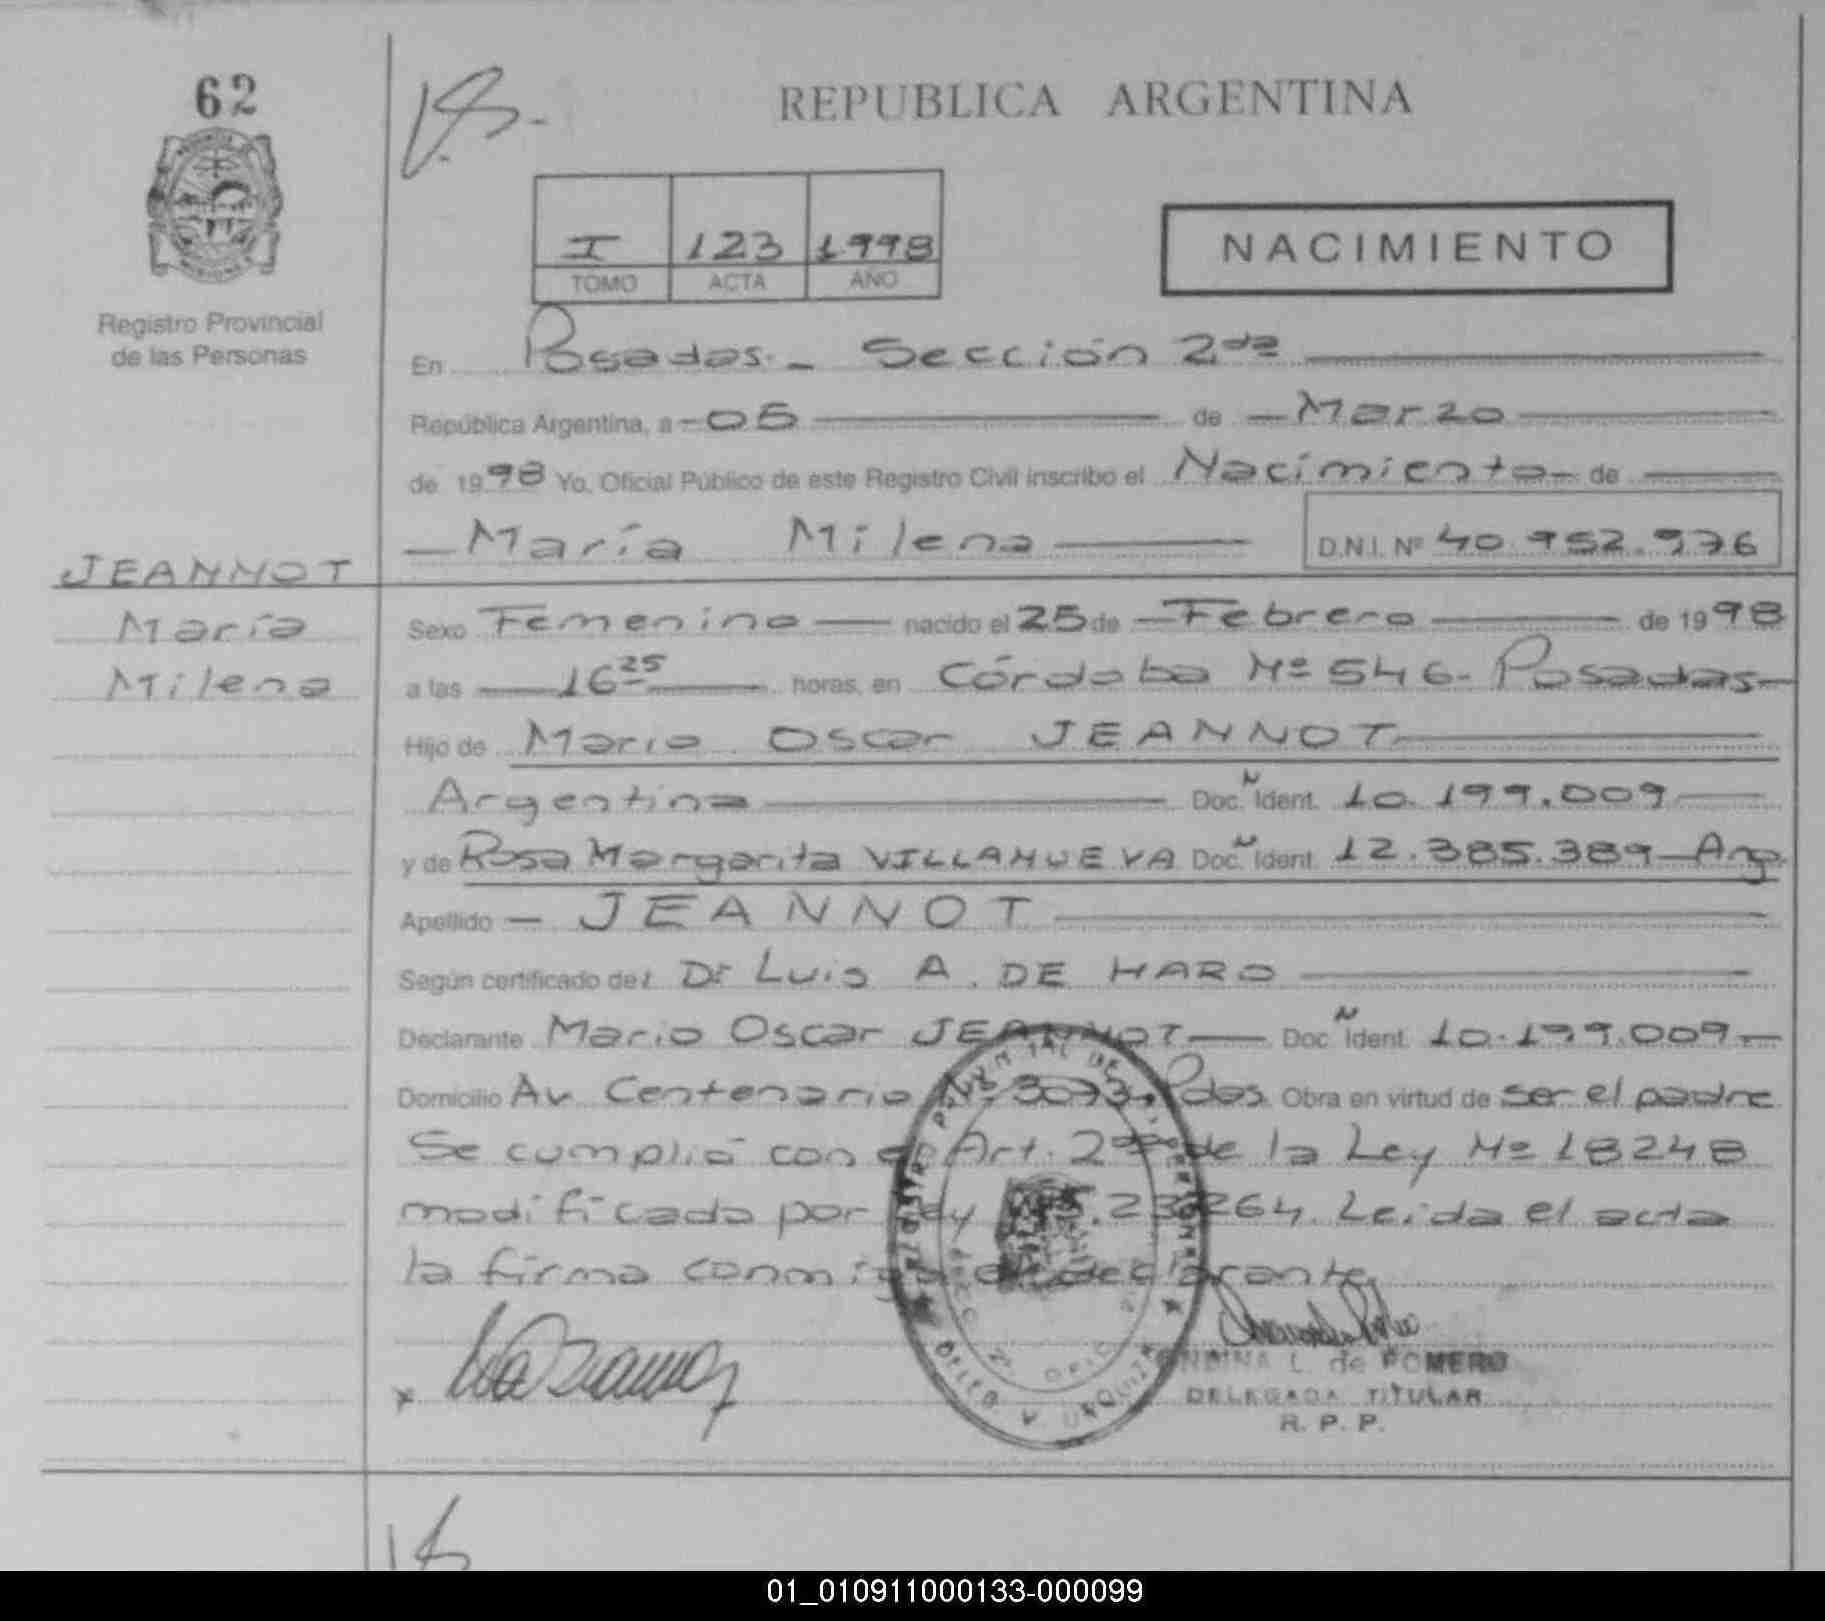 62
REPUBLICA ARGENTINA
I 123 1998
TOMO ACTA AÑO
NACIMIENTO
Registro Provincial
de las Personas
En Posadas - Sección 2da
República Argentina, a 05 de Marzo
de 1998 Yo, Oficial Público de este Registro Civil inscribo el Nacimiento de
María Milena D.N.I. Nº 40.952.976
JEANNOT
María
Milena
Sexo Femenino nacido el 25 de Febrero de 1998
a las 16 25 horas, en Córdoba Nº 546 - Posadas
Hijo de Mario Oscar JEANNOT
Argentina Doc. N Ident. 10.199.009
y de Rosa Margarita VILLANUEVA Doc. N Ident. 12.385.389 Arg.
Apellido JEANNOT
Según certificado del Dr Luis A. DE HARO
Declarante Mario Oscar JEANNOT Doc. N Ident. 10.199.009
Domicilio Av. Centenario Nº 3073. Pdas. Obra en virtud de ser el padre
Se cumplió con el Art. 2do de la Ley Nº 18248
modificada por Ley 23264. Leída el acta
la firma conmigo el declarante.
L. de ROMERO
DELEGADA TITULAR
R. P. P.
01_010911000133-000099